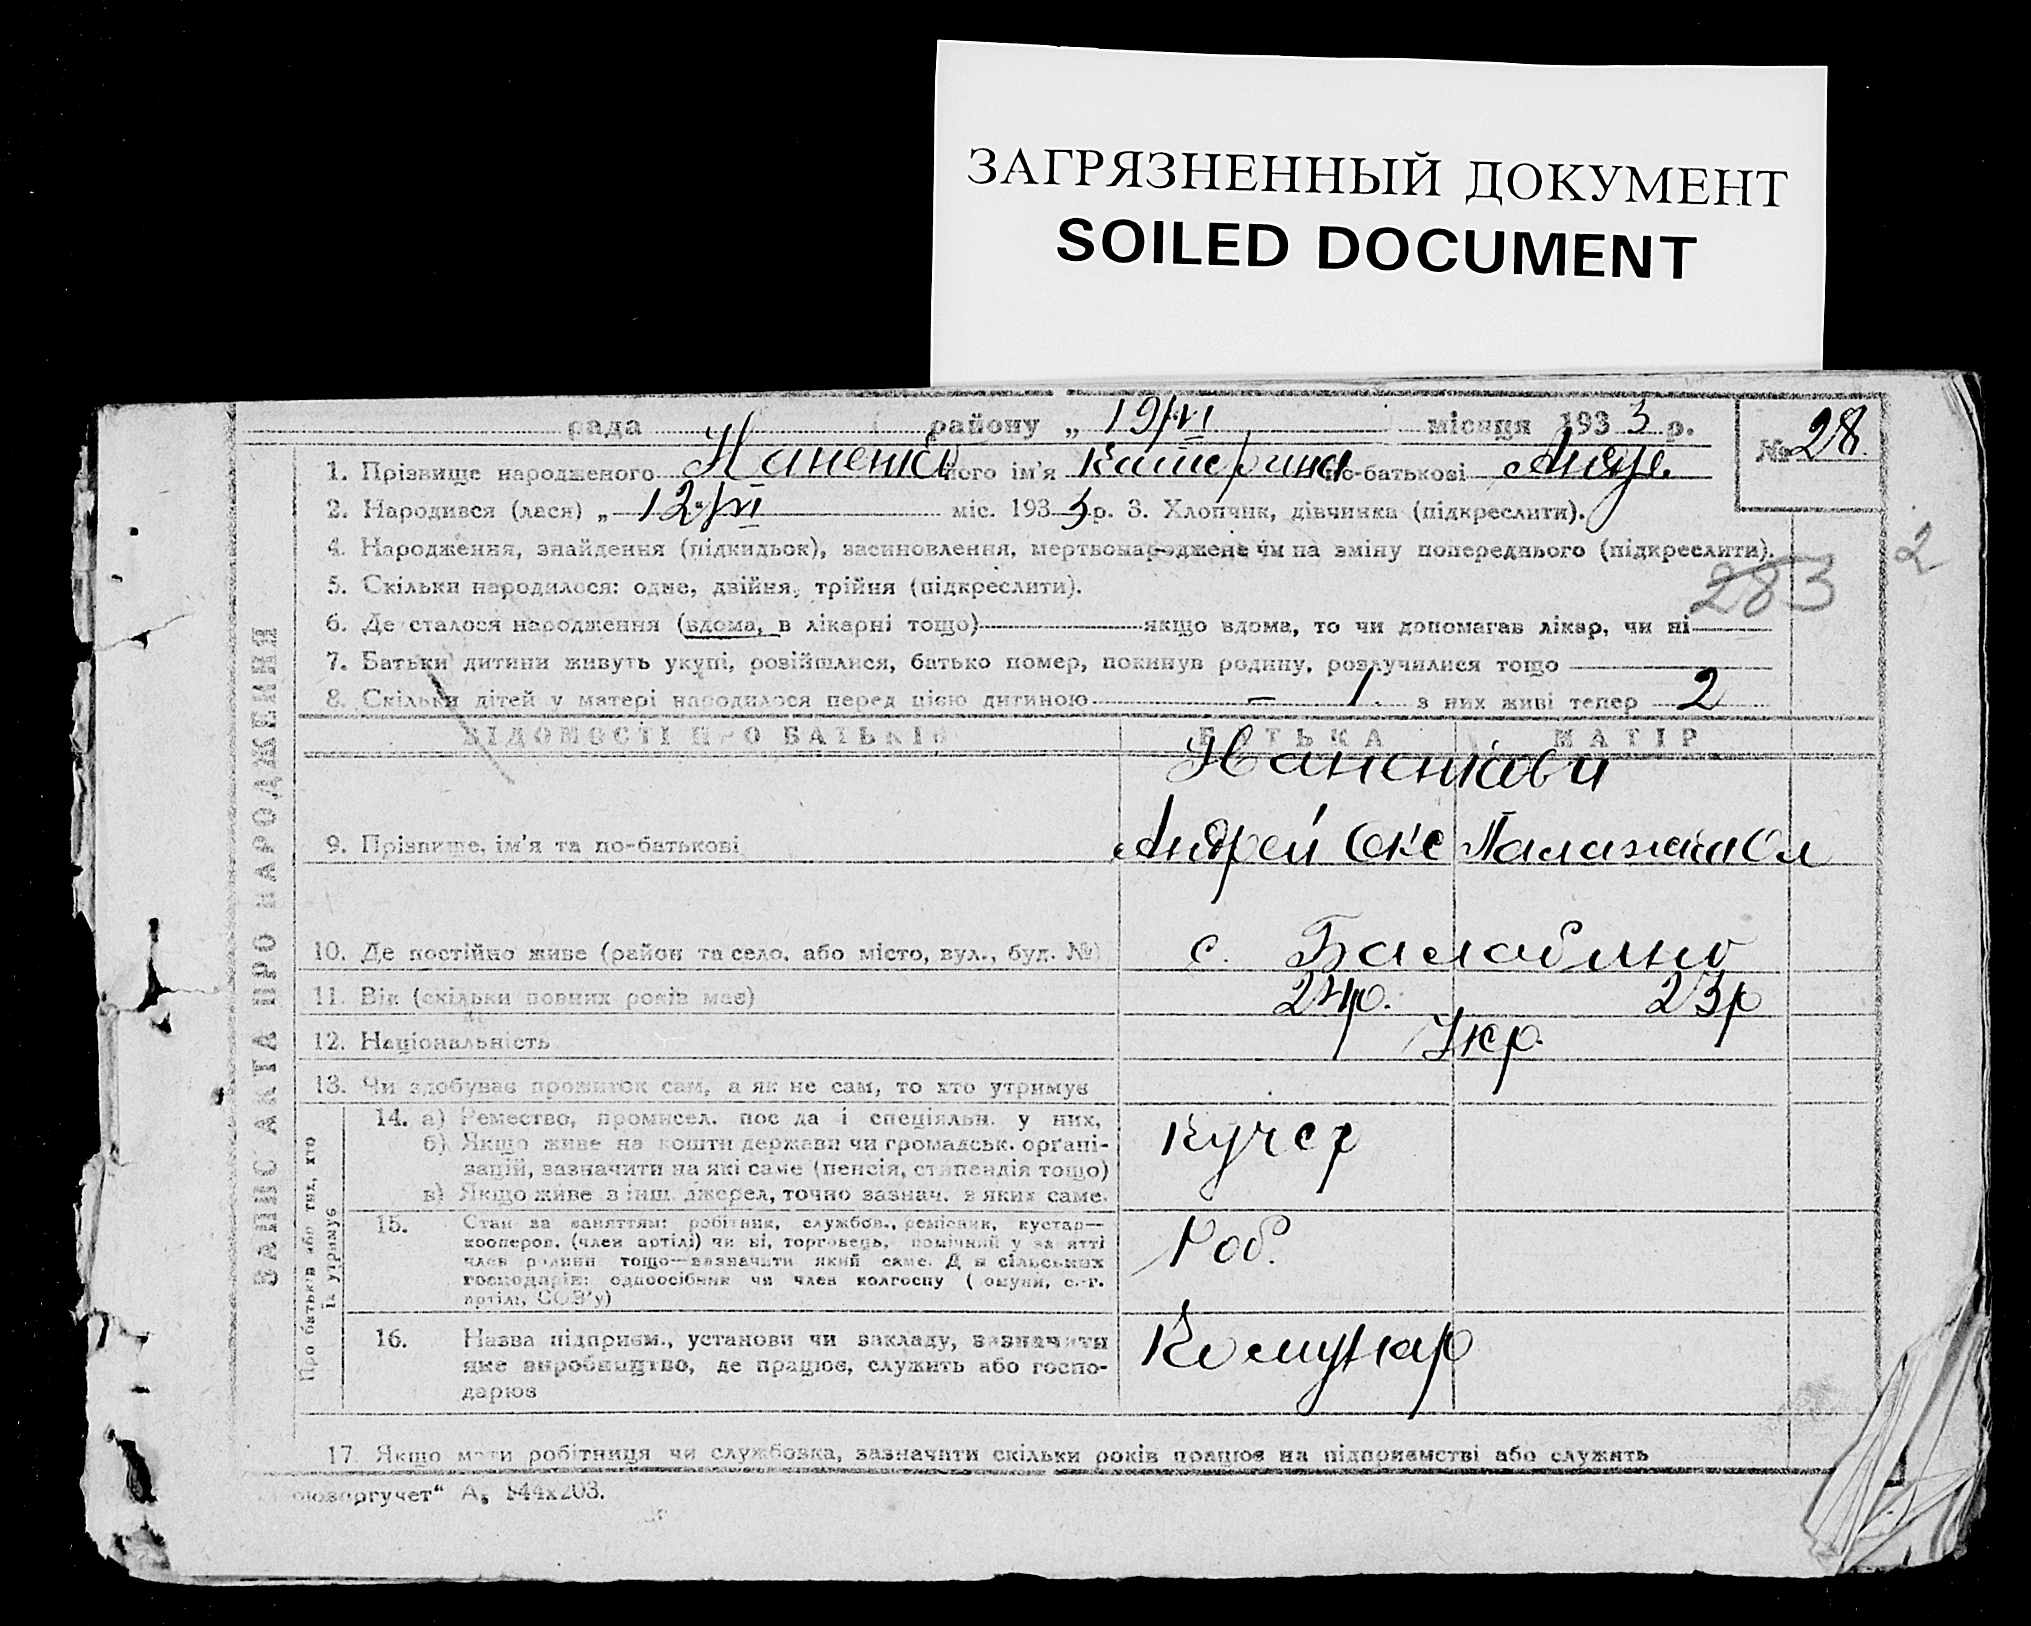 ЗАГРЯЗНЕННЫЙ ДОКУМЕНТ
SOILED DOCUMENT
рада району „ 19/VI місяця 1933 р. № 28
1. Прізвище народженого його ім'я Катерина по-батькові
2. Народився (лася) „ 12/VI міс. 1933 р. 3. Хлопчик, дівчинка (підкреслити).
4. Народження, знайдення (підкидьок), засиновлення, мертвонароджене чи на зміну попереднього (підкреслити).
2
5. Скільки народилося: одне, двійня, трійня (підкреслити).
283
6. Де сталося народження (вдома, в лікарні тощо) якщо вдома, то чи допомагав лікар, чи ні
7. Батьки дитини живуть укупі, розійшлися, батько помер, покинув родину, розлучилися тощо
8. Скільки дітей у матері народилося перед цією дитиною – 1. з них живі тепер 2
ВІДОМОСТІ ПРО БАТЬКІВ БАТЬКА МАТІР
9. Прізвище, ім'я та по-батькові Андрей
10. Де постійно живе (район та село, або місто, вул., буд. №) с. Балабино
11. Вік (скільки повних років має) 24р. 23р
12. Національність Укр.
13. Чи здобуває прожиток сам, а як не сам, то хто утримує
14. а) Ремество, промисел, посада і спеціяльн. у них,
б) Якщо живе на кошти держави чи громадськ. орґані-
зацій, зазначити на які саме (пенсія, стипендія тощо)
в) Якщо живе з інш. джерел, точно зазнач. з яких саме.
Кучер
15. Стан за заняттям: робітник, службов., ремісник, кустар—
кооперов. (член артілі) чи ні, торговець, помічний у занятті
член родини тощо—зазначити який саме. Для сільських
господарів: одноосібник чи член колгоспу (комуни, с.-г.
артілі, СОЗ'у)
Роб.
16. Назва підприєм., установи чи закладу, зазначити
яке виробництво, де працює, служить або госпо-
дарює
Комунар
17. Якщо мати робітниця чи службовка, зазначити скільки років працює на підприємстві або служить
ЗАПИС АКТА ПРО НАРОДЖЕННЯ
Про батьків або тих, хто
їх утримує